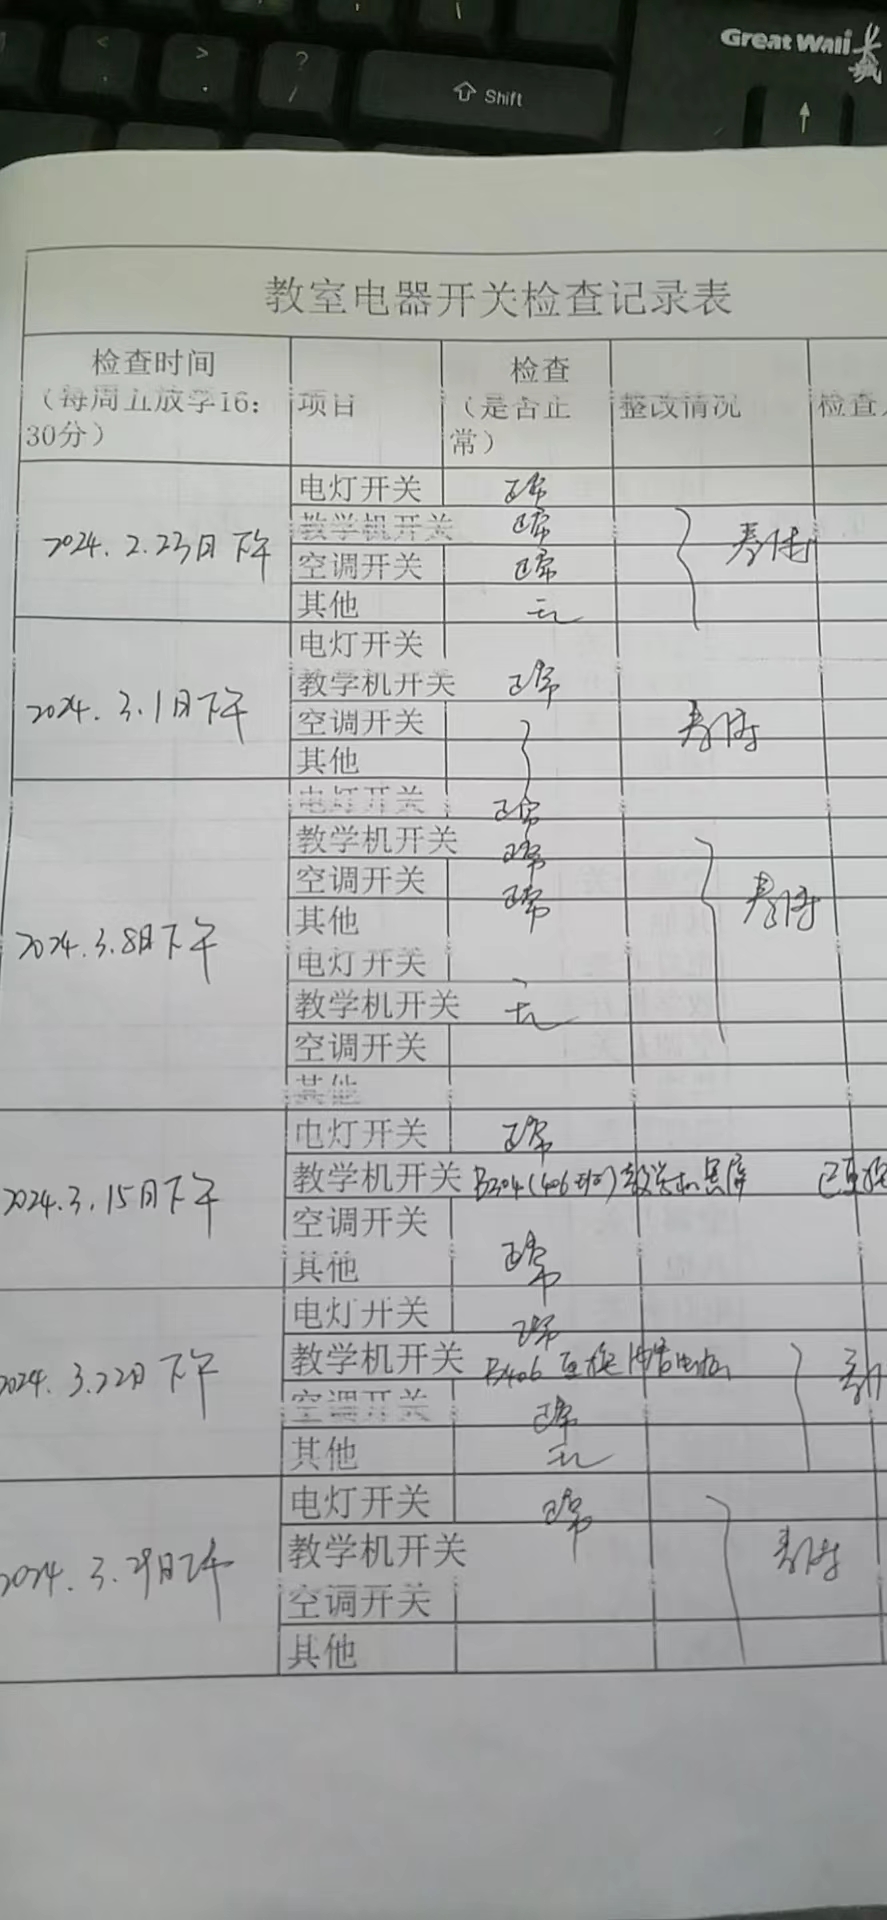 Great Wall 长城
< ,
> .
? /
Shift
教室电器开关检查记录表
检查时间
（每周五放学16:
30分）
项目
检查
（是否正
常）
整改情况
检查人
2024.2.23日下午
电灯开关 正常
教学机开关 正常
空调开关 正常
其他 无
2024.3.1日下午
电灯开关
教学机开关 正常
空调开关
其他
2024.3.8日下午
电灯开关 正常
教学机开关 正常
空调开关 正常
其他
电灯开关
教学机开关 无
空调开关
其他
2024.3.15日下午
电灯开关 正常
教学机开关 B304(406班)教学机黑屏 已更换
空调开关
其他 正常
2024.3.22日下午
电灯开关 正常
教学机开关 B406 更换
空调开关 正常
其他 无
2024.3.29日下午
电灯开关 正常
教学机开关
空调开关
其他